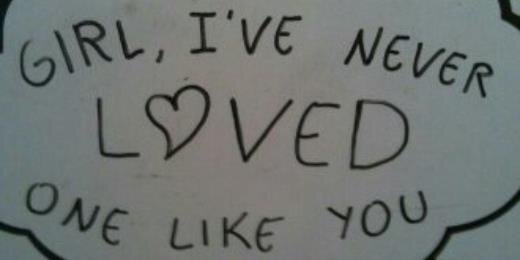 GIRL, I'VE NEVER
L♡VED
ONE LIKE YOU